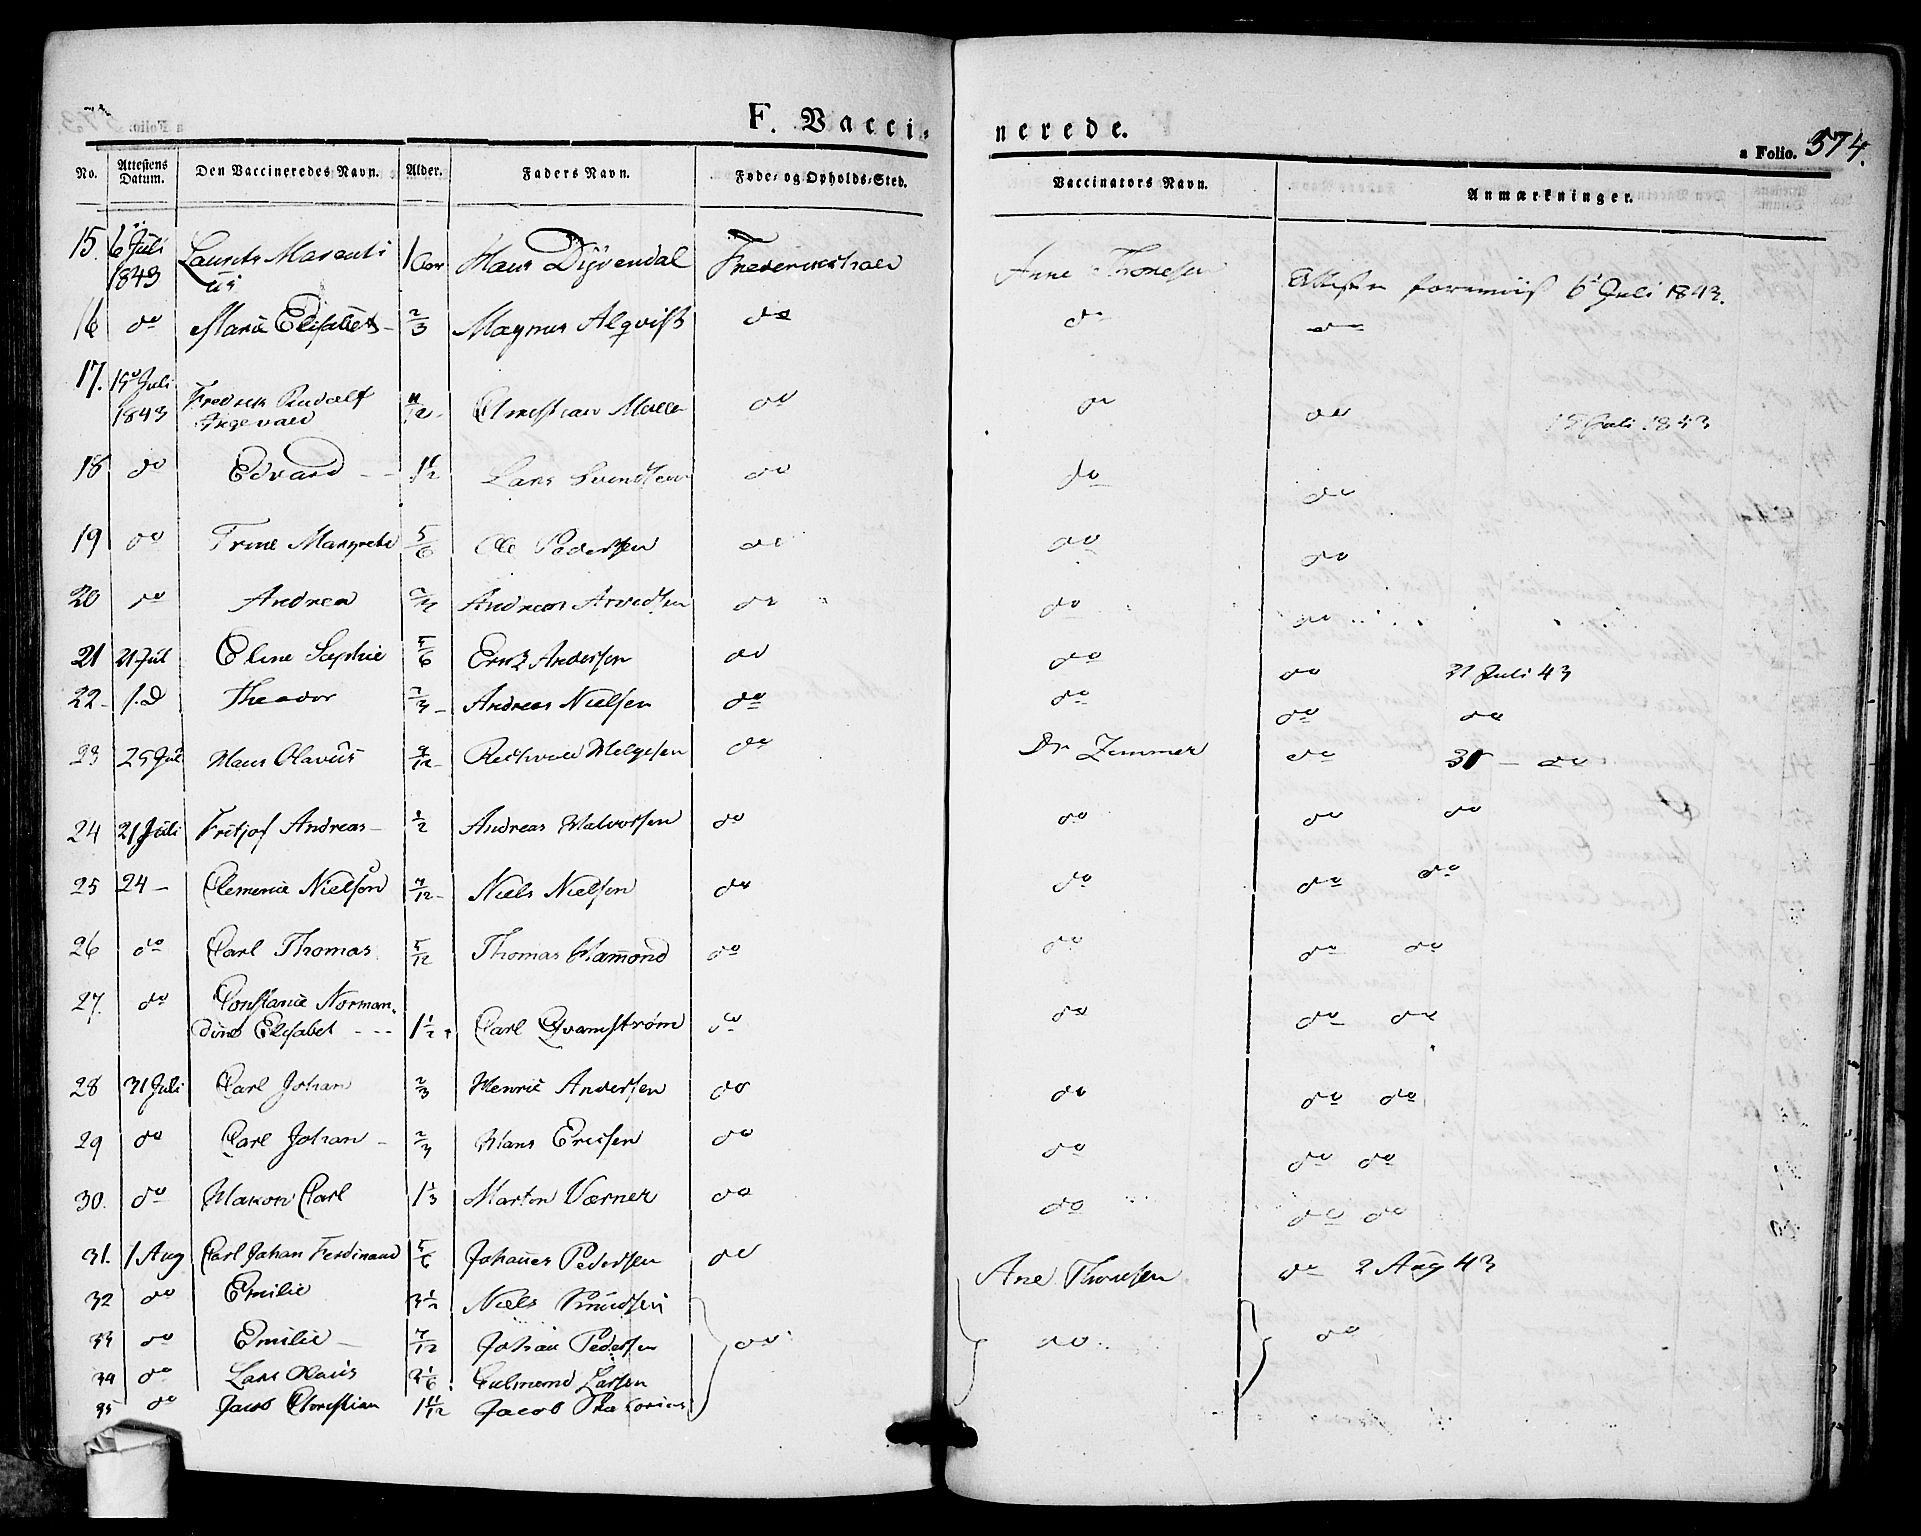 F. Vacci-
nerede.
a Folio. 574.
No. Attestens Datum. Den Vaccineredes Navn. Alder. Faders Navn. Føde- og Opholds-Sted. Vaccinators Navn. Anmærkninger.
15. 6 Juli 1843 Laurits Marenti
us 1 Aar Hans Dijvendal Frederikshald Anne Thonesen 6 Juli 1843.
16 do Marie Elisabet - 2/3 Magnus Alqvist do do do
17. 15 Juli
1843 Fredrik Rudolf
Ingevald 11/12 - Christian Møller do do do 15 Juli 1843
18 do Edvard - - 1 1/2 Lars Svendsen do do do
19 do Trine Margrete 5/6 Ole Pedersen do do do
20 do Andrea Andreas Arvedsen do do do
21 21 Jul Eline Sophie 5/6 Andersen do do do 21 Juli 43
22 - Theodor 2/3 - Andreas Nielsen do do do do
23 25 Jul Hans Olavus 9/12 - Helgesen do Dr Zimmer do 31 - do
24 21 Juli Fritjof Andreas - 1/2 Andreas Halvorsen do do do do
25 24 - Clemenie Nielson 7/12 - Niels Nielsen do do do do
26 do Carl Thomas 5/12 Thomas Hammond do do do do
27. do Constanie Norman-
dine Elisabet - - - 1 1/2 Carl Qvamstrøm do do do do
28 31 Juli Carl Johan 2/3 Henric Andersen do do do do
29 do Carl Johan - 2/3 Hans Ericsen do do do do
30. do Hakon Carl 1 1/3 Marton Værner do do do do
31. 1 Aug Carl Johan Ferdinand 5/6 Johannes Pedersen do Ane Thonesen do 2 Aug 43
32 do Emilie 3 1/2 Niels Knudsen
33 do Emilie - 7/12 Johan Pedersen do do do
34 do Lars Olaus Gulmond Larsen
35 do Jacob Christian 1 11/12 Jacob Prætorius